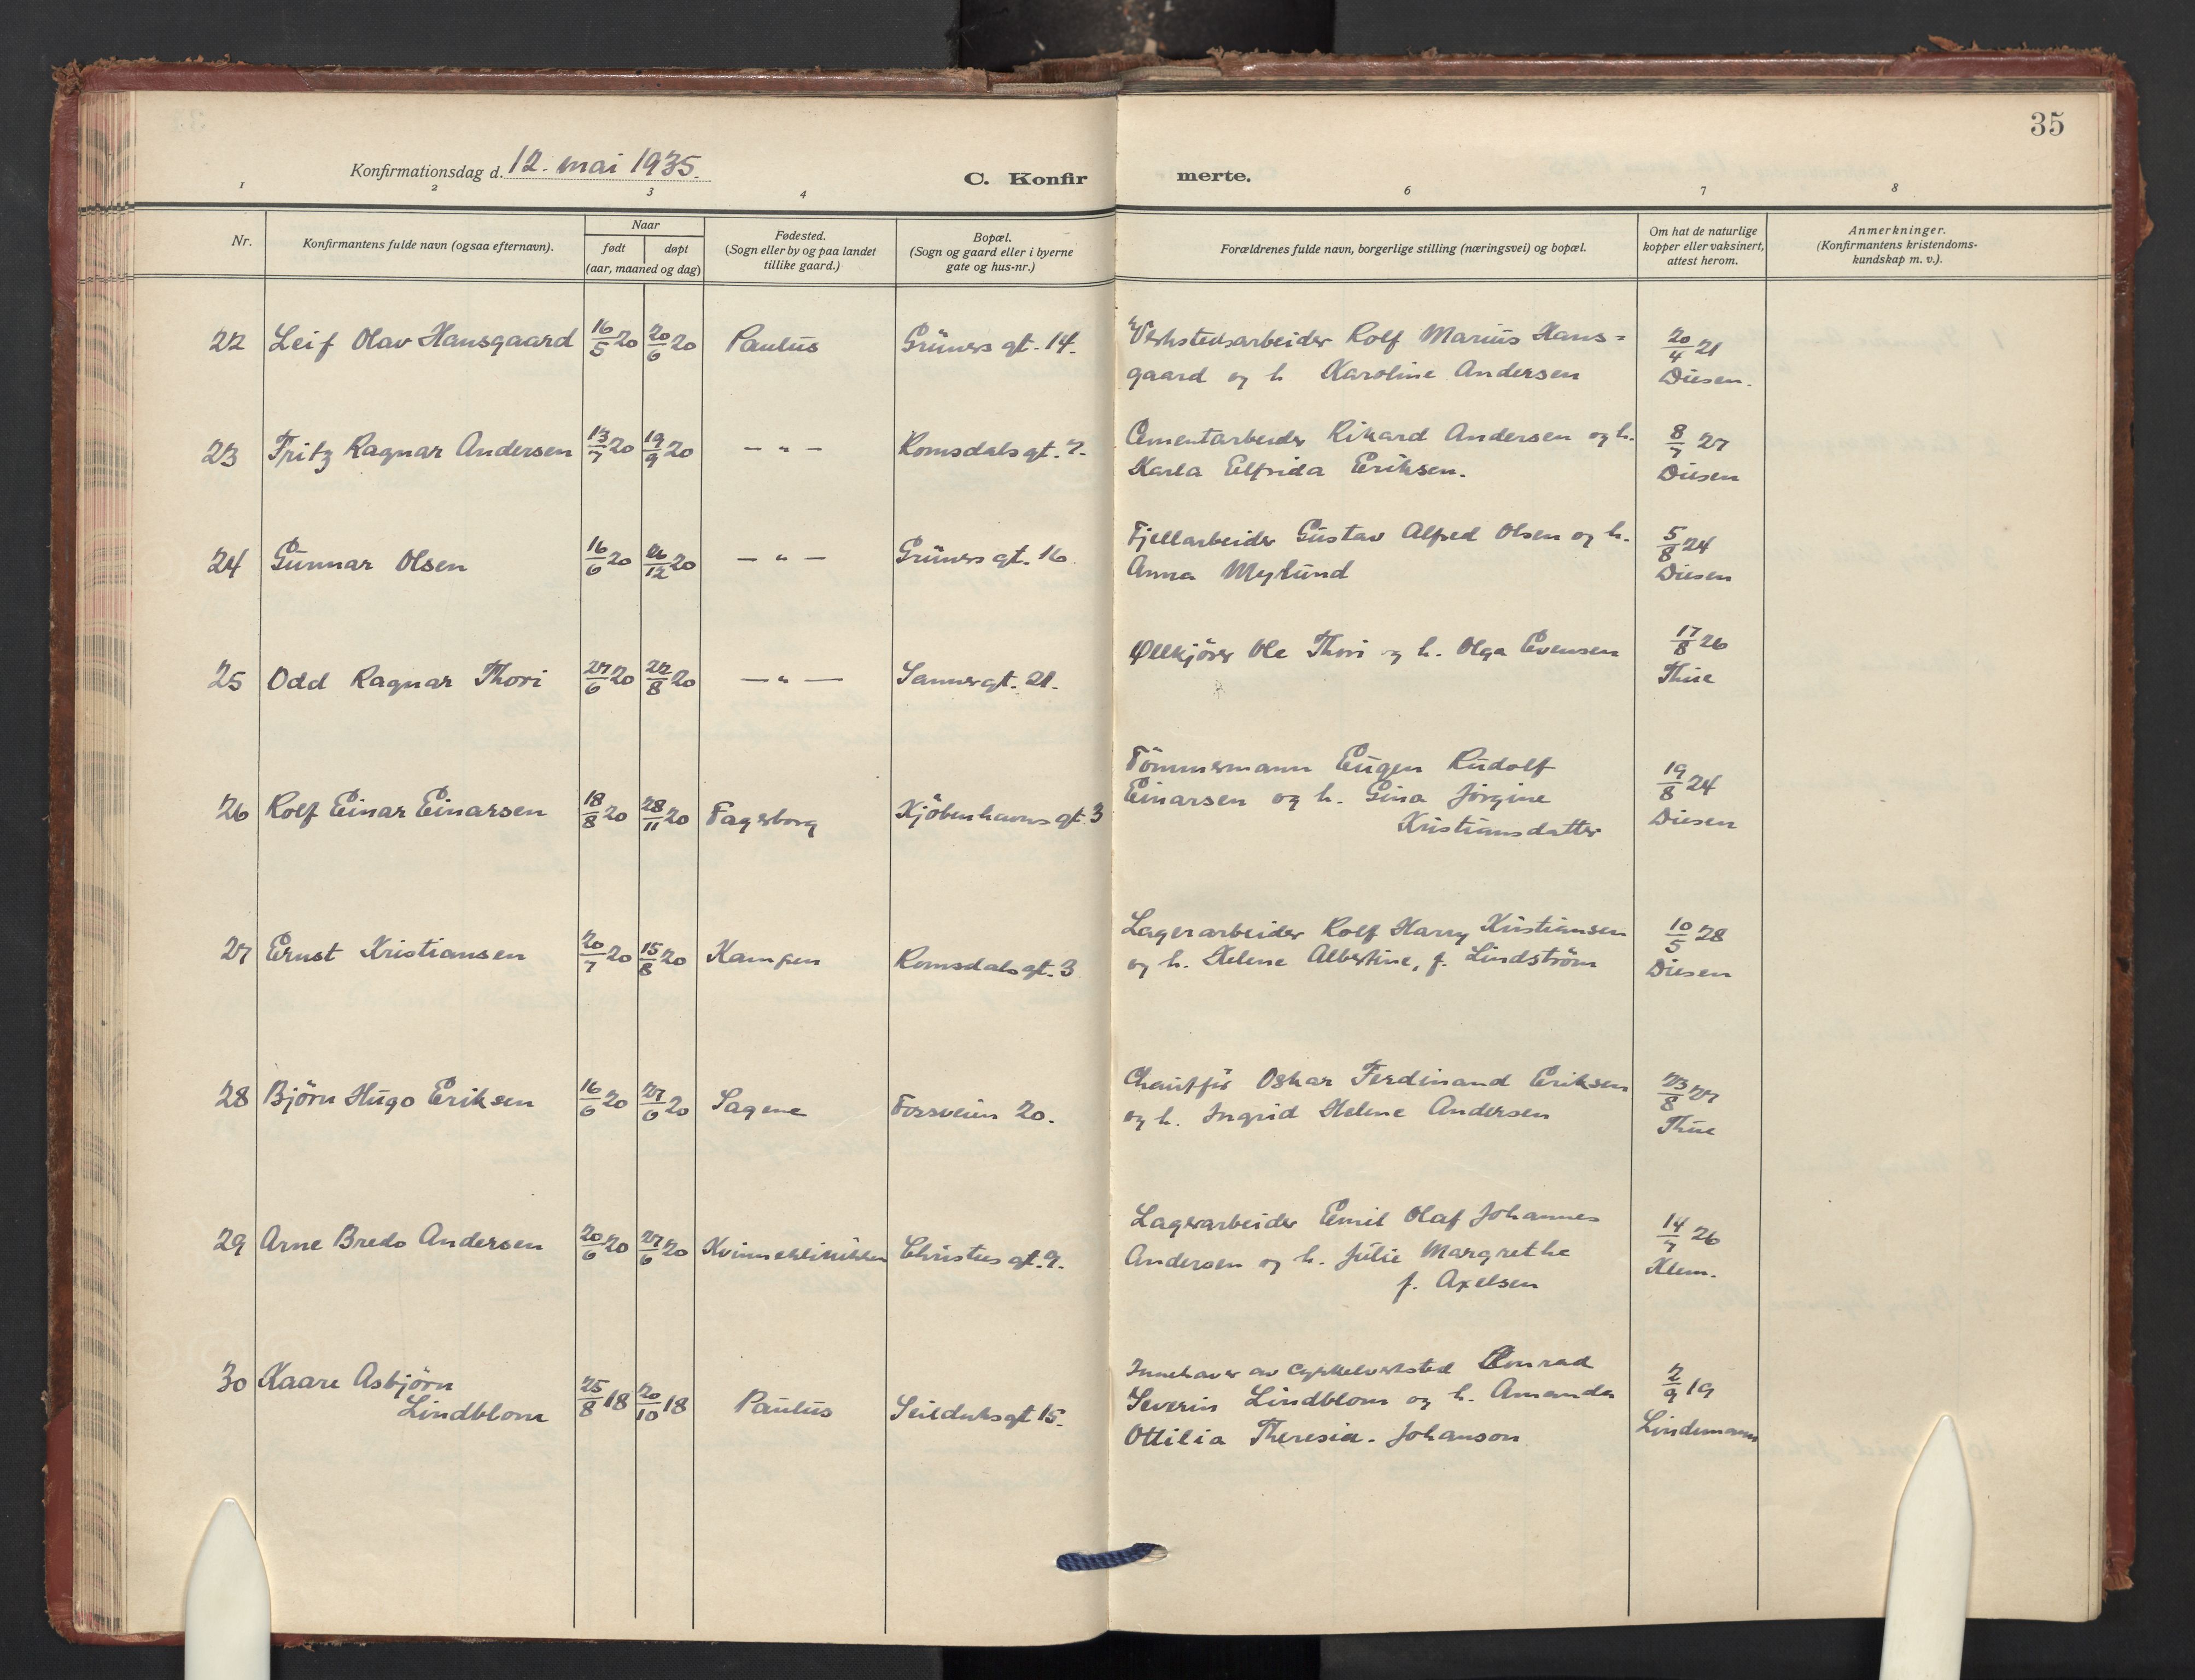 35
Konfirmationsdag d. 12. mai 1935.
C. Konfir merte.
1 2 3 4 6 7 8
Nr.
Konfirmantens fulde navn (ogsaa efternavn).
Naar
født døpt
(aar, maaned og dag)
Fødested.
(Sogn eller by og paa landet
tillike gaard.)
Bopæl.
(Sogn og gaard eller i byerne
gate og hus-nr.)
Forældrenes fulde navn, borgerlige stilling (næringsvei) og bopæl.
Om hat de naturlige
kopper eller vaksinert,
attest herom.
Anmerkninger.
(Konfirmantens kristendoms-
kundskap m. v.).
22 Leif Olav Hansgaard 16/5 20 20/6 20 Paulus Grüners gt. 14.
Verkstedsarbeider Rolf Marius Hans=
gaard og h. Karoline Andersen
20/4 21
Diesen.
23 Fritz Ragnar Andersen 13/7 20 19/9 20 — " — Romsdalsgt. 7.
Cementarbeider Rikard Andersen og h.
Karla Elfrida Eriksen.
8/7 27
Diesen
24 Gunnar Olsen 16/6 20 26/12 20 — " — Grüners gt. 16
Fjellarbeider Gustav Alfred Olsen og h.
Anna Mylund
5/8 24
Diesen
25 Odd Ragnar Thori 27/6 20 22/8 20 — " — Sannergt. 21.
Ølkjörer Ole Thori og h. Olga Evensen
17/8 26
Thue
26 Rolf Einar Einarsen 18/8 20 28/11 20 Fagerborg Kjöbenhavnsgt. 3
Tömmermann Eugen Rudolf
Einarsen og h. Gina Jörgine
Kristiansdatter
19/8 24
Diesen
27 Ernst Kristiansen 20/7 20 15/8 20 Kampen Romsdalsgt. 3
Lagerarbeider Rolf Harry Kristiansen
og h. Helene Albertine, f. Lindström
10/5 28
Diesen
28 Björn Hugo Eriksen 16/6 20 27/6 20 Sagene Forsveien 20.
Chauffür Oskar Ferdinand Eriksen
og h. Ingrid Helene Andersen
23/8 27
Thue
29 Arne Bredo Andersen 20/6 20 27/6 20 Kvinneklinikken Christies gt. 9.
Lagerarbeider Emil Olaf Johannes
Andersen og h. Julie Margrethe
f. Axelsen
14/7 26
Klem.
30 Kaare Asbjörn
Lindblom 25/8 18 20/10 18 Paulus Seilduksgt 15.
Innehaver av Cykkelverksted Conrad
Severin Lindblom og h. Amanda
Ottilia Theresia. Johanson
2/9 19
Lindemann